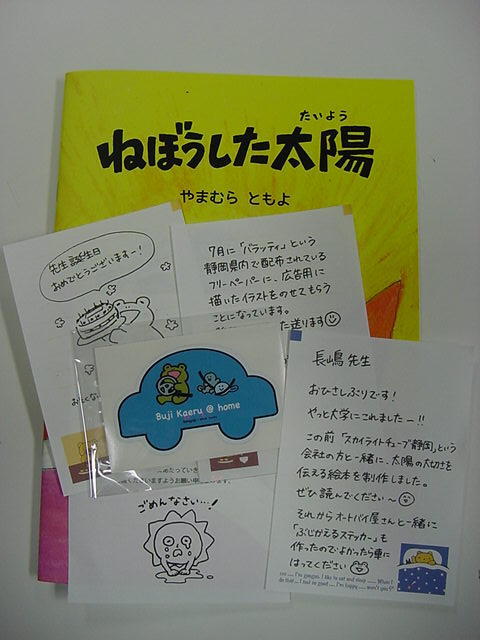 たいよう
ねぼうした太陽
やまむら ともよ
先生 誕生日
おめでとうございますー!
7月に「パラッティ」という
静岡県内で配布されている
フリーペーパーに、広告用に
描いたイラストをのせてもらう
ことになっています。
た送ります
Buji Kaeru @ home
長嶋 先生
おひさしぶりです!
やっと大学にこれましたー!!
この前 "スカイライトチューブ静岡"という
会社の方と一緒に、太陽の大切さを
伝える絵本を制作しました。
ぜひ読んでください〜
それからオートバイ屋さんと一緒に
「ぶじかえるステッカー」も
作ったのでよかったら車に
はってください
くださいますようお願い申
ごめんなさい…!